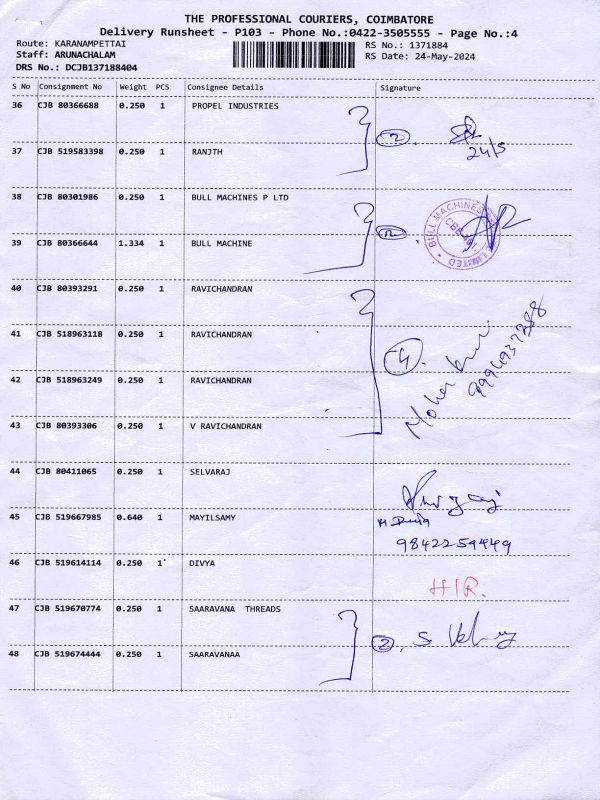 THE PROFESSIONAL COURIERS, COIMBATORE
Delivery Runsheet - P103 - Phone No.:0422-3505555 - Page No.:4
Route: KARANAMPETTAI RS No.: 1371884
Staff: ARUNACHALAM RS Date: 24-May-2024
DRS No.: DCJB137188404
S No Consignment No Weight PCS Consignee Details Signature
36 CJB 80366688 0.250 1 PROPEL INDUSTRIES
2
24/5
37 CJB 519583398 0.250 1 RANJTH
38 CJB 80301986 0.250 1 BULL MACHINES P LTD
BULL MACHINES LIMITED
39 CJB 80366644 1.334 1 BULL MACHINE
40 CJB 80393291 0.250 1 RAVICHANDRAN
41 CJB 518963118 0.250 1 RAVICHANDRAN
4
42 CJB 518963249 0.250 1 RAVICHANDRAN
43 CJB 80393306 0.250 1 V RAVICHANDRAN
44 CJB 80411065 0.250 1 SELVARAJ
45 CJB 519667985 0.640 1 MAYILSAMY
9842259449
46 CJB 519614114 0.250 1 DIVYA
HIR.
47 CJB 519670774 0.250 1 SAARAVANA THREADS
2
48 CJB 519674444 0.250 1 SAARAVANAA